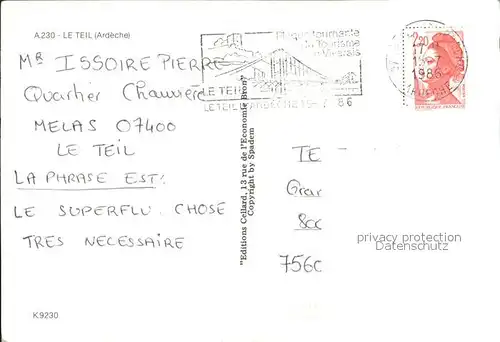 A.230 - LE TEIL (Ardèche)
MR ISSOIRE PIERRE
Quartier
MELAS 07400
LE TEIL
LA PHRASE EST:
LE SUPERFLU. CHOSE
TRES NECESSAIRE
K9230
"Editions Cellard, 13 rue de l'Economie Bron"
Copyright by Spadem
Plaque tournante
du Tourisme
en Vivarais
LE TEIL
LE TEIL ARDECHE 15-7 86
2,20
17 H
15-7
1986
ARDECHE
TE
Grar
8cc
756C
privacy protection
www.oldthing.de